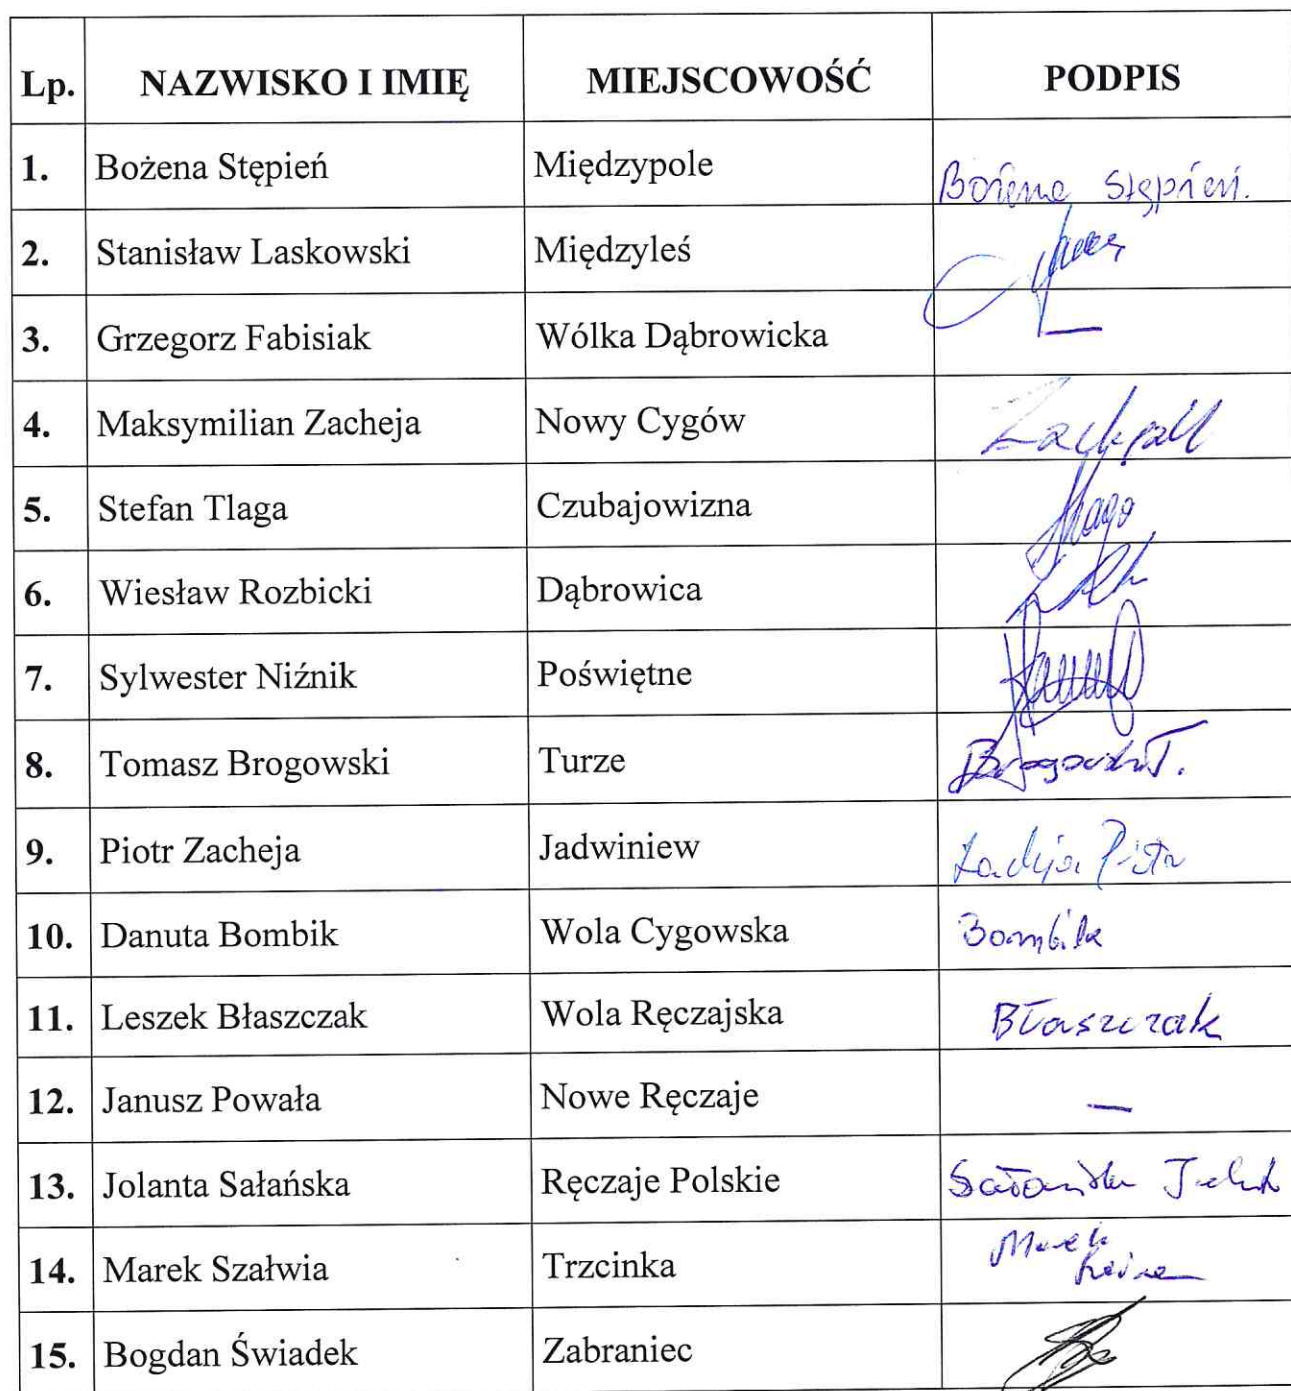 Lp. NAZWISKO I IMIĘ MIEJSCOWOŚĆ PODPIS
1. Bożena Stępień Międzypole Bożena Stępień.
2. Stanisław Laskowski Międzyleś
3. Grzegorz Fabisiak Wólka Dąbrowicka —
4. Maksymilian Zacheja Nowy Cygów
5. Stefan Tlaga Czubajowizna Tlaga
6. Wiesław Rozbicki Dąbrowica
7. Sylwester Niźnik Poświętne
8. Tomasz Brogowski Turze Brogowski T.
9. Piotr Zacheja Jadwiniew Zacheja Piotr
10. Danuta Bombik Wola Cygowska Bombik
11. Leszek Błaszczak Wola Ręczajska Błaszczak
12. Janusz Powała Nowe Ręczaje —
13. Jolanta Sałańska Ręczaje Polskie Sałańska Jolanta
14. Marek Szałwia Trzcinka Marek
15. Bogdan Świadek Zabraniec